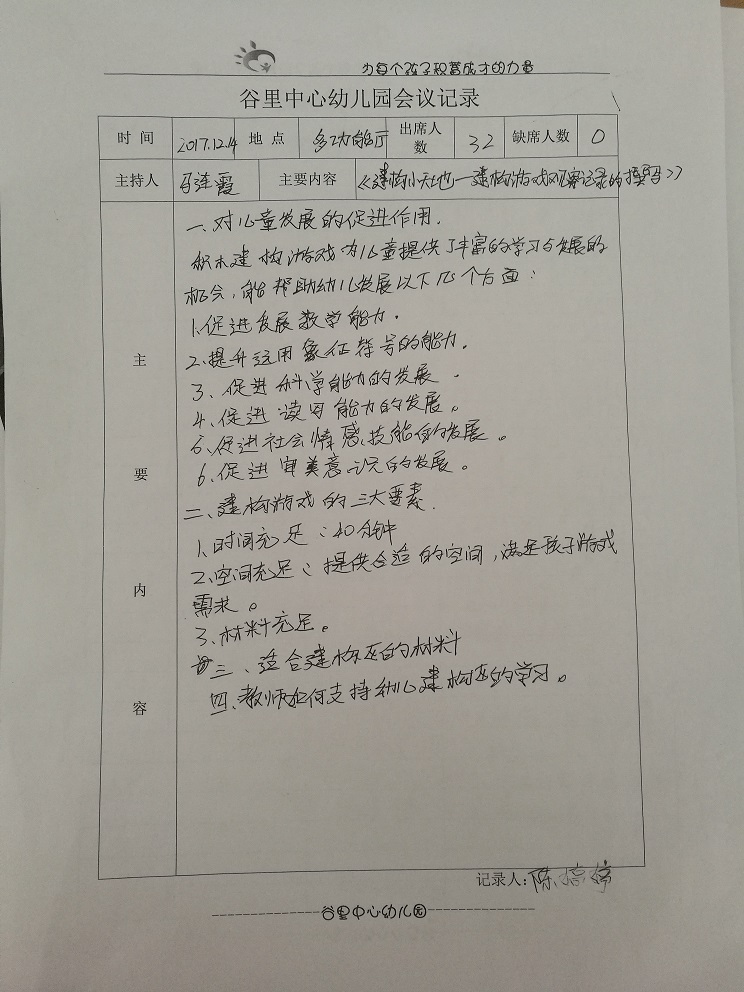 为每个孩子积蓄成才的力量
谷里中心幼儿园会议记录
时间 2017.12.14 地点 多功能厅 出席人数 32 缺席人数 0
主持人 马连霞 主要内容 《建构小天地—建构游戏观察记录的撰写》
主要内容
一、对儿童发展的促进作用.
积木建构游戏为儿童提供了丰富的学习与发展的
机会,能帮助幼儿发展以下几个方面:
1.促进发展数学能力.
2.提升运用象征符号的能力.
3、促进科学能力的发展.
4、促进读写能力的发展。
5、促进社会情感、技能的发展。
6.促进审美意识的发展。
二、建构游戏的三大要素.
1、时间充足:40分钟
2、空间充足:提供合适的空间,满足孩子游戏
需求。
3、材料充足。
三、适合建构区的材料
四、教师如何支持幼儿建构区的学习。
记录人:陈婷婷
谷里中心幼儿园